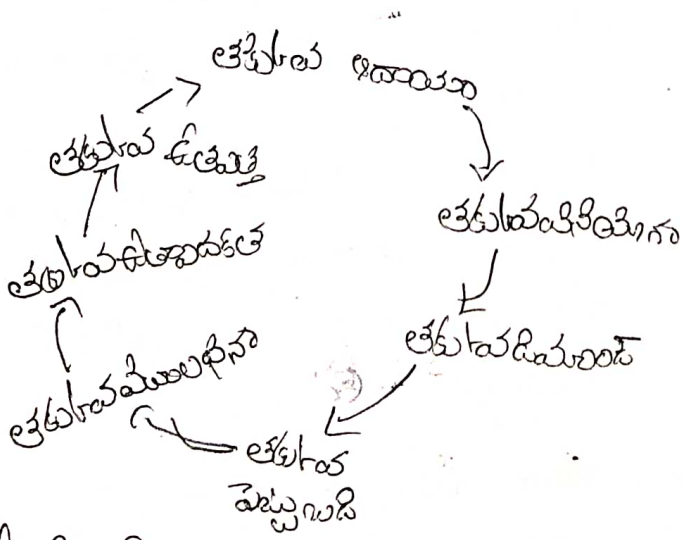 తక్కువ ఆదాయం
తక్కువ వినియోగా
తక్కువ డిమాండ్
తక్కువ
పెట్టుబడి
తక్కువ మూలధనా
తక్కువ ఉత్పాదకత
తక్కువ ఉత్పత్తి